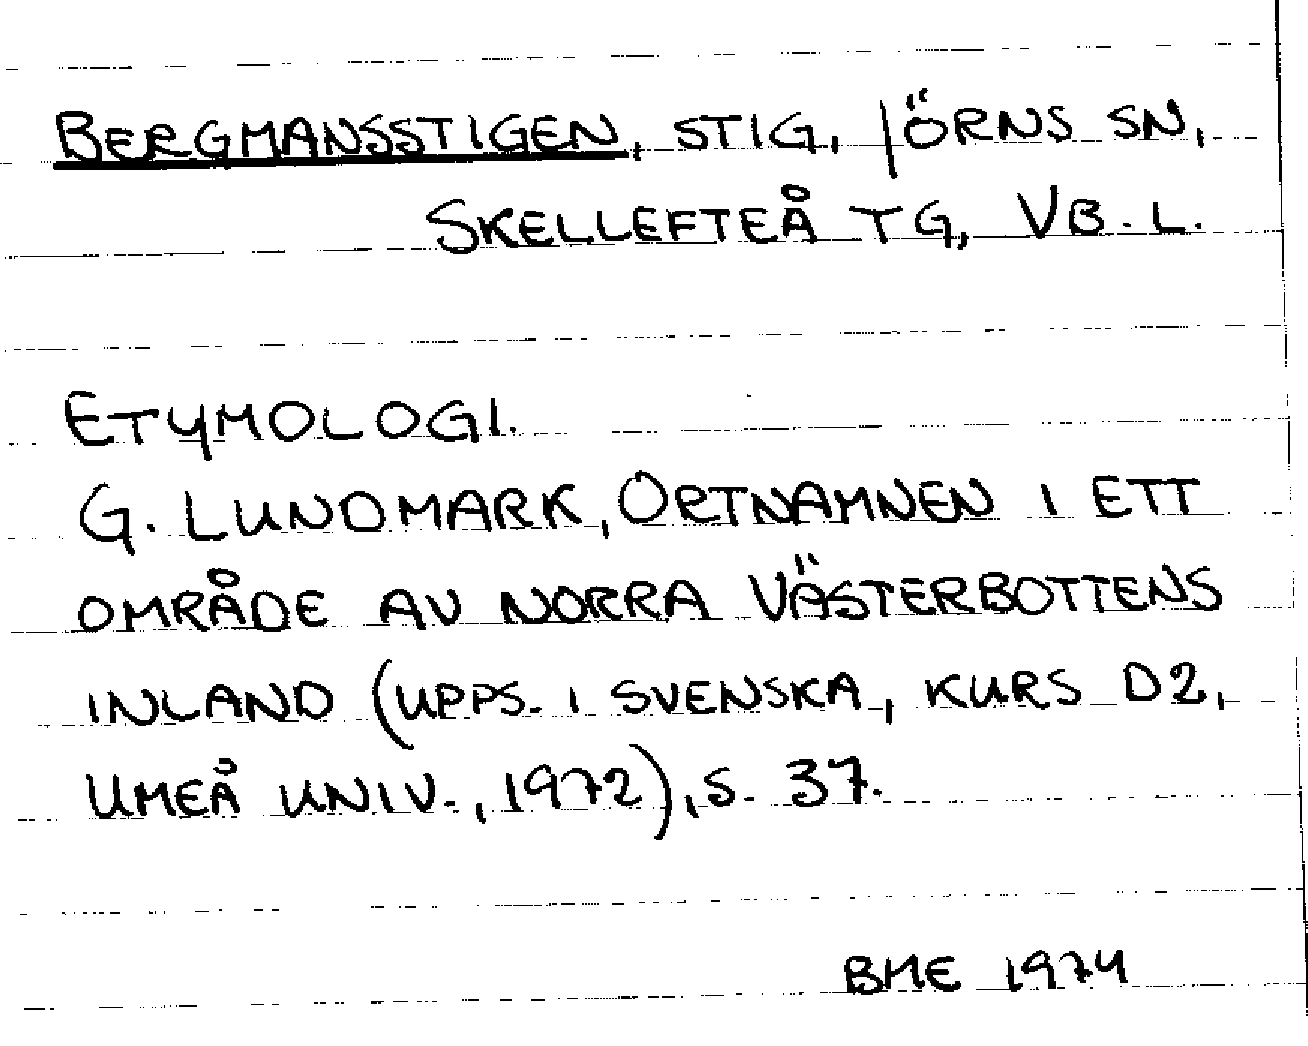 BERGMANSSTIGEN, STIG, JÖRNS SN,
SKELLEFTEÅ TG, VB. L.
ETYMOLOGI.
G. LUNDMARK, ORTNAMNEN I ETT
OMRÅDE AV NORRA VÄSTERBOTTENS
INLAND (UPPS. I SVENSKA, KURS D2,
UMEÅ UNIV., 1972), S. 37.
BME 1974